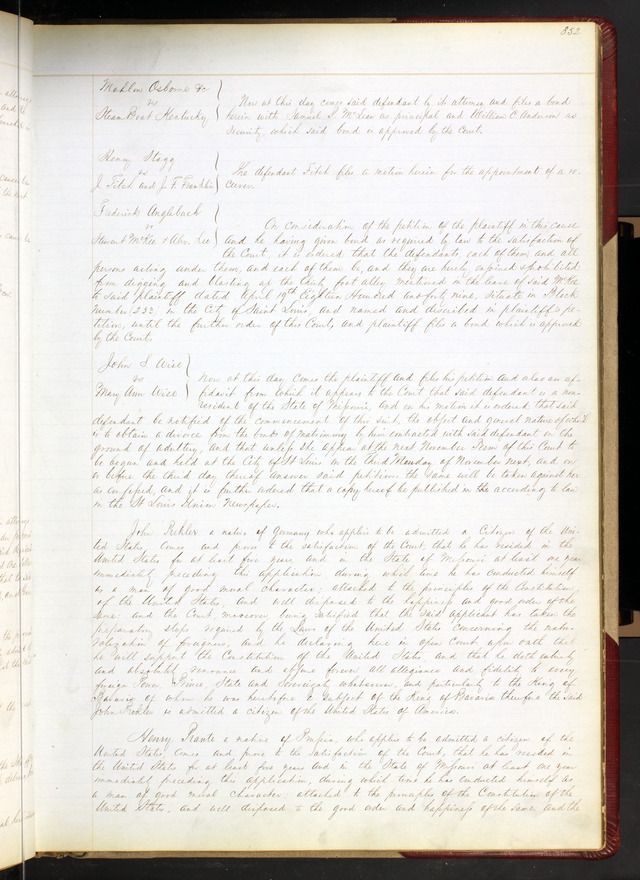 332
Mahlon Osborne &c
vs
Steam Boat Kentucky
Now at this day comes said defendant by its attorney and files a bond
herein with Samuel S. McLean as principal and William C. Anderson as
security, which said bond is approved by the Court.
Henry Stagg
vs
J. Fitch and J. F. Franklin
The defendant Fitch files a motion herein for the appointment of a re-
ceiver.
Frederick Angleback
vs
Stewart McKee & Abr. Lee
On consideration of the petition of the plaintiff in this cause
and he having given bond as required by law to the satisfaction of
the Court, it is ordered that the defendants, each of them, and all
persons acting under them, and each of them be, and they are hereby enjoined & prohibited
from digging and blasting up the thirty foot alley mentioned in the lease of said McKee
to said plaintiff dated April 19th Eighteen Hundred and forty nine, situate in Block
Number 233 in the City of Saint Louis, and named and described in plaintiff's pe-
tition, until the further order of this Court, and plaintiff files a bond which is approved
by the Court.
John S. Wise
vs
Mary Ann Wise
Now at this day comes the plaintiff and files his petition and also an af-
fidavit from which it appears to the Court that said defendant is a non-
resident of the State of Missouri, and on his motion it is ordered that said
defendant be notified of the commencement of this suit, the object and general nature of which
is to obtain a divorce from the bonds of matrimony by him contracted with said defendant on the
ground of adultery, and that unless she appear at the next November Term of this Court to
be begun and held at the City of St Louis on the Third Monday of November next, and on
or before the third day thereof answer said petition, the same will be taken against her
as confessed, and it is further ordered that a copy hereof be published in the according to law
in the St Louis Union Newspaper.
John a native of Germany who applies to be admitted a Citizen of the Uni-
ted States, comes and proves to the satisfaction of the Court, that he has resided in the
United States for at least five years, and in the State of Missouri at least one year
immediately preceding this application, during which time he has conducted himself
as a man of good moral character; attached to the principles of the Constitution
of the United States, and well disposed to the happiness and good order of the
same. and the Court, moreover, being satisfied that the said applicant has taken the
preparatory steps required by the Laws of the United States concerning the natu-
ralization of foreigners, and he declaring here in open Court, upon oath that
he will support the Constitution of the United States, and that he doth entirely
and absolutely renounce and abjure forever all allegiance and fidelity to every
foreign Power, Prince, State and Sovereignty whatsoever, and particularly to the King of
Bavaria of whom he was heretofore a subject of the King of Bavaria therefore the said
John is admitted a citizen of the United States of America.
Henry a native of Prussia, who applies to be admitted a citizen of the
United States, comes and proves to the satisfaction of the Court, that he has resided in
the United States for at least five years and in the State of Missouri at least one year
immediately preceding this application, during which time he has conducted himself as
a man of good moral character; attached to the principles of the Constitution of the
United States, and well disposed to the good order and happiness of the same and the